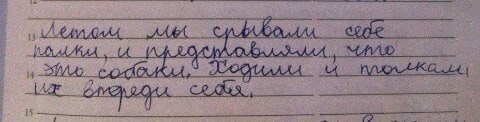 Летом мы срывали себе
13
палки, и представляли, что
это собаки. Ходили и толкали
14
их впереди себя.
15